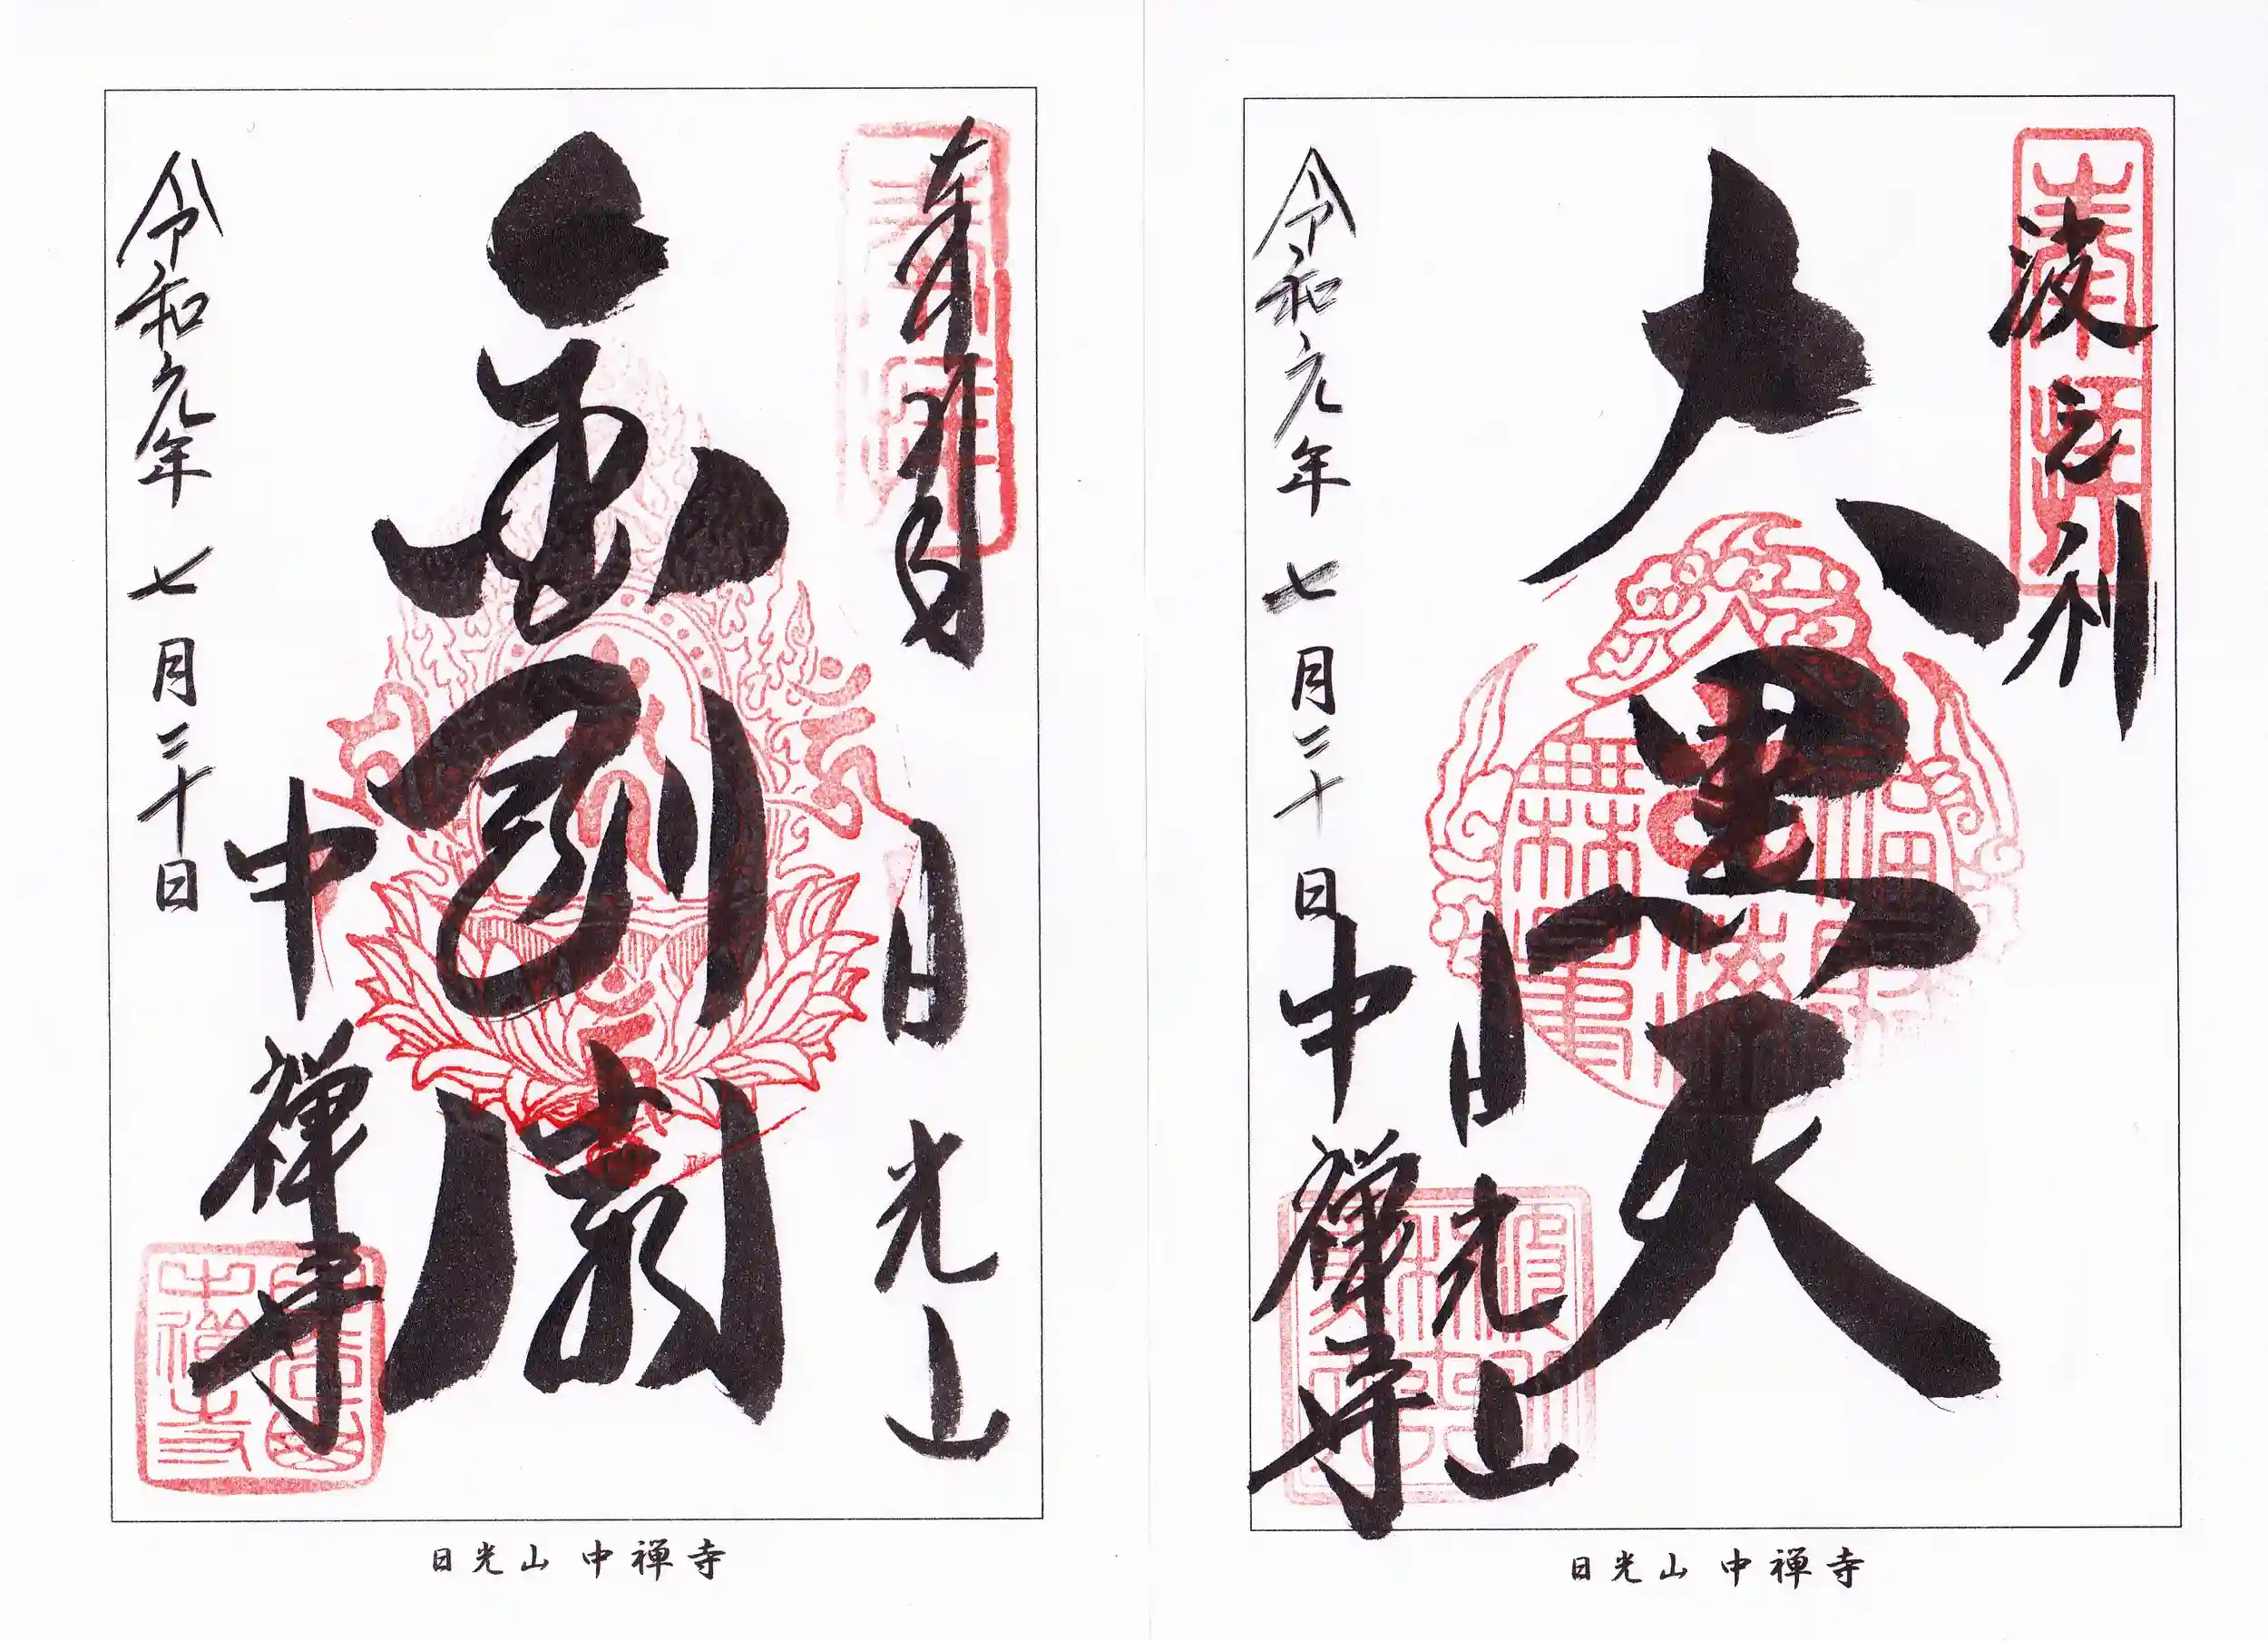 奉拝
波之利
大黒天
日光山
中禅寺
令和元年七月二十日
福聚海無量
日光山 中禅寺
奉拝
日光山
中禅寺
令和元年七月二十日
日光山 中禅寺